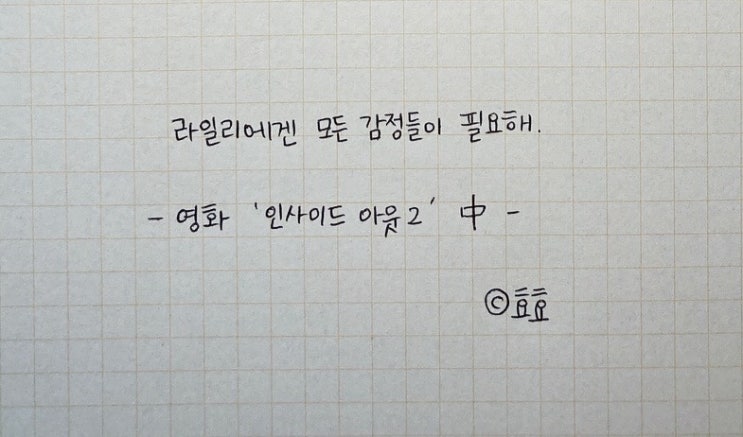 라일리에겐 모든 감정들이 필요해.
- 영화 '인사이드 아웃2' 中 -
©효효